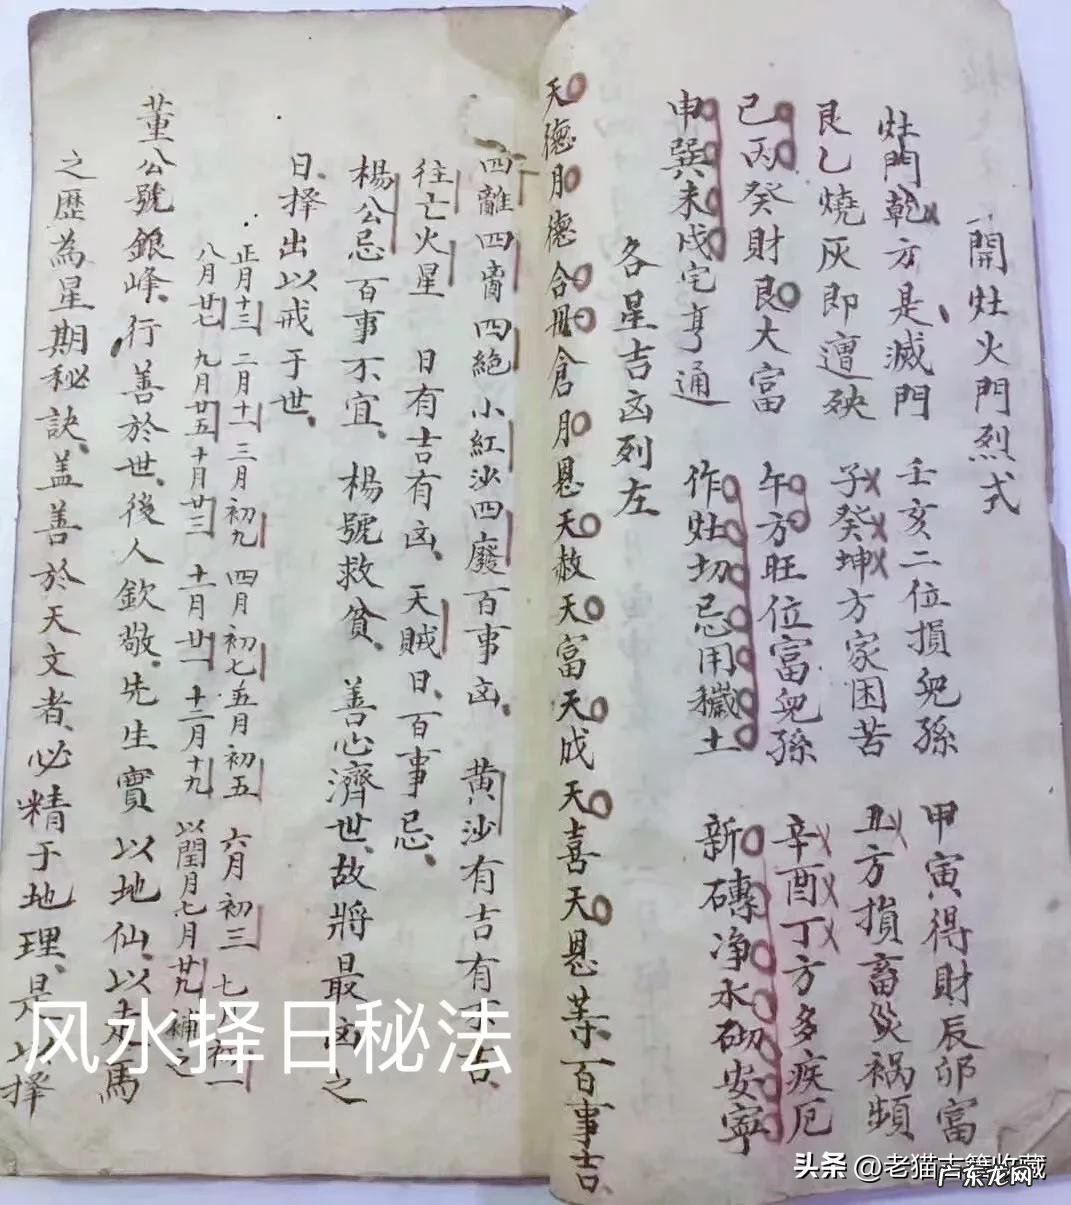 開灶火門烈式
灶門乾方是滅門 壬亥二位損兒孫 甲寅得財辰卯富
艮乙燒灰即遭殃 子癸坤方家困苦 丑方損畜災禍頻
巳丙癸財艮大富 午方旺位富兒孫 辛酉丁方多疾厄
申巽未戌宅亨通 作灶切忌用穢土 新磚净水砌安寧
各星吉凶列左
天德月德合冊倉月恩天赦天富天成天喜天恩等百事吉
四離四窮四絕小紅沙四廢百事凶、黄沙有吉有不吉、
往亡火星 日有吉有凶、天賊日、百事忌、
楊公忌百事不宜、楊號救貧、善心濟世、故將最凶之
日、择出以戒于世、
正月十三 二月十一 三月初九 四月初七 五月初五 六月初三 七月初一
八月廿七 九月廿五 十月廿三 十一月廿一 十二月十九 以閏月七月廿九補之
董公號銀峰、行善於世、後人欽敬、先生實以地仙、以走馬
之歷為星期秘訣、盖善於天文者、必精于地理、是以择
风水择日秘法
头条 @老猫古籍收藏
广东龙网